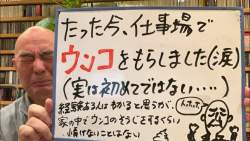 たった今、仕事場で
ウンコをもらしました(涙)
(実は初めてではない・・・・)
経験ある人はわかると思うが、
家の中でウンコのそうじをするくらい
情けないことはない
トホホ